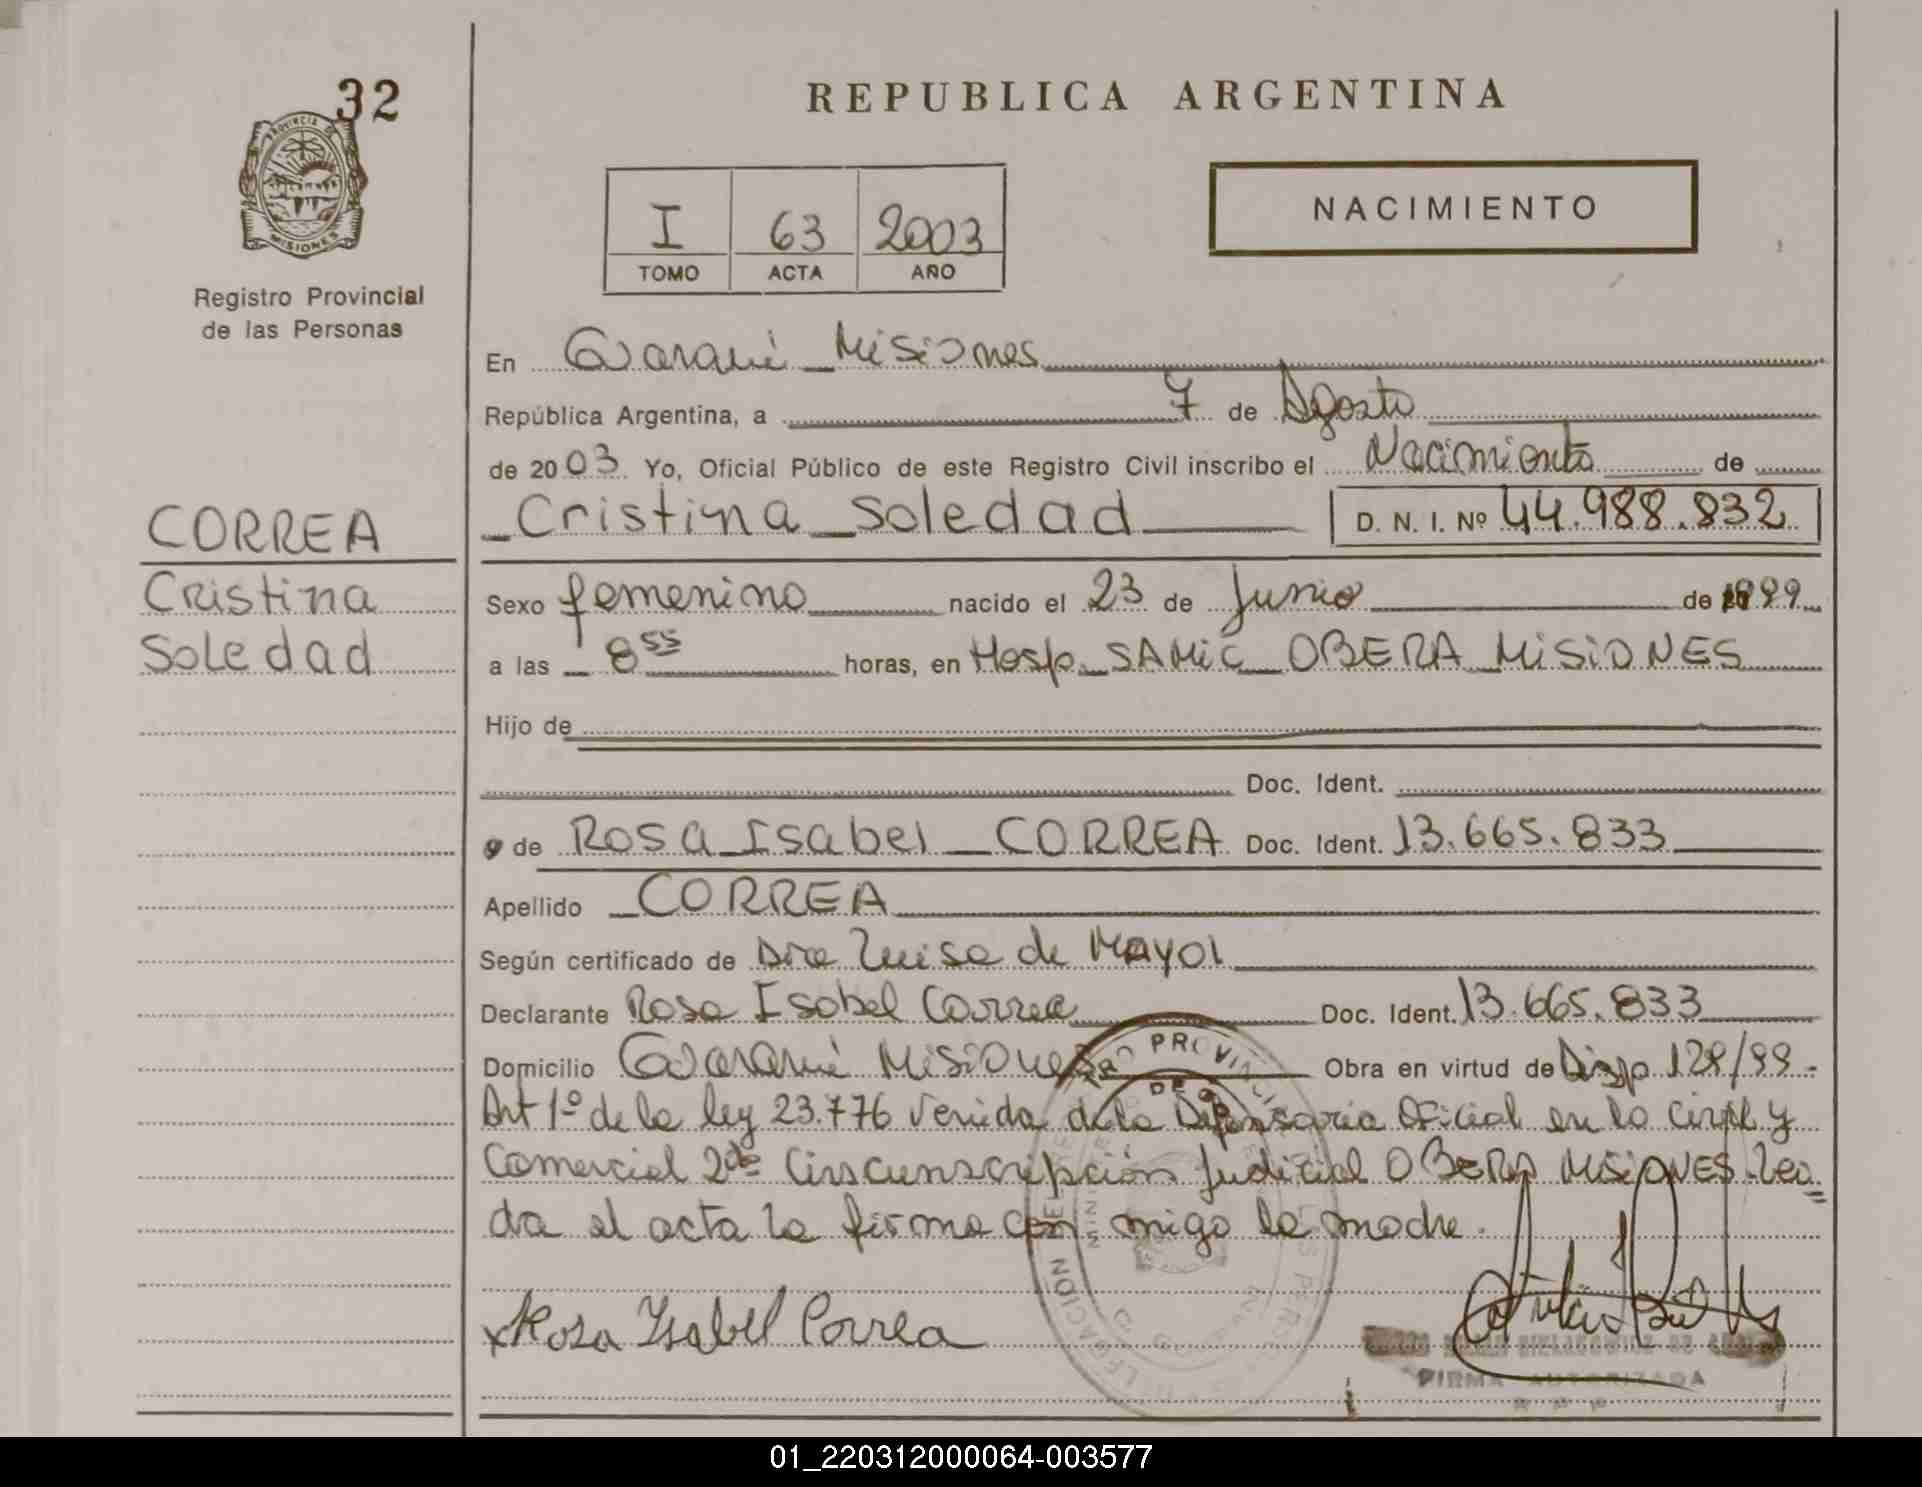 32
PROVINCIA DE
MISIONES
Registro Provincial
de las Personas
REPUBLICA ARGENTINA
I 63 2003
TOMO ACTA AÑO
NACIMIENTO
En Guaraní Misiones
República Argentina, a 7 de Agosto
de 2003. Yo, Oficial Público de este Registro Civil inscribo el Nacimiento de
Cristina Soledad D. N. I. Nº 44.988.832
CORREA
Cristina
Soledad
Sexo femenino nacido el 23 de Junio de 1999
a las 8 55 horas, en Hosp. SAMIC OBERA MISIONES
Hijo de
Doc. Ident.
y de Rosa Isabel CORREA Doc. Ident. 13.665.833
Apellido CORREA
Según certificado de Dra Luisa de Mayol
Declarante Rosa Isabel Correa Doc. Ident. 13.665.833
Domicilio Guaraní Misiones Obra en virtud de Disp 128/99.-
Art 1º de la ley 23.776 venida de la Defensoria Oficial en lo Civil y
Comercial 2da Circunscripción Judicial OBERA MISIONES. Lei=
da el acta la firma con migo la madre.
x Rosa Isabel Correa
FIRMA AUTORIZADA
01_220312000064-003577